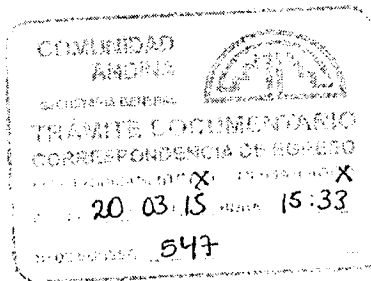 COMUNIDAD
ANDINA
SECRETARIA GENERAL
TRÁMITE DOCUMENTARIO
CORRESPONDENCIA DE EGRESO
X X
20 03 15 HORA 15:33
547